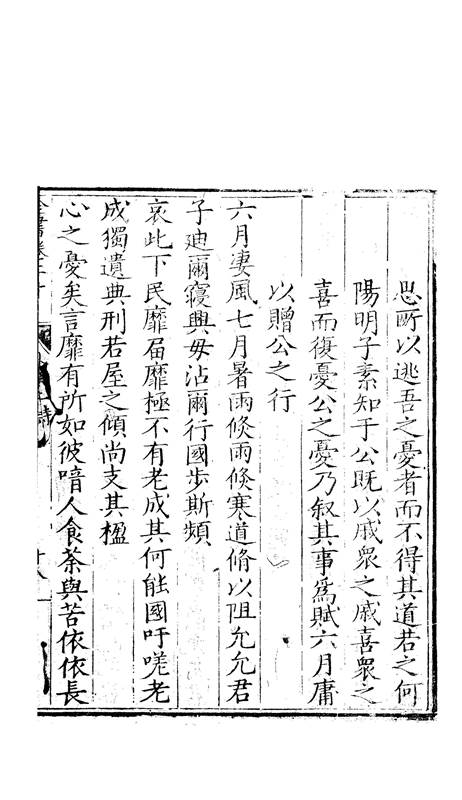 思所以逃吾之憂者而不得其道若之何
陽明子素知于公既以戚衆之戚喜衆之
喜而復憂公之憂乃叙其事爲賦六月庸
以贈公之行
六月凄風七月暑雨倏雨倏寒道脩以阻允允君
子迪爾寢興毋沾爾行國步斯頻
哀此下民靡届靡極不有老成其何能國吁嗟老
成獨遺典刑若屋之傾尚支其楹
心之憂矣言靡有所如彼喑人食荼與苦依依長
全書卷二十